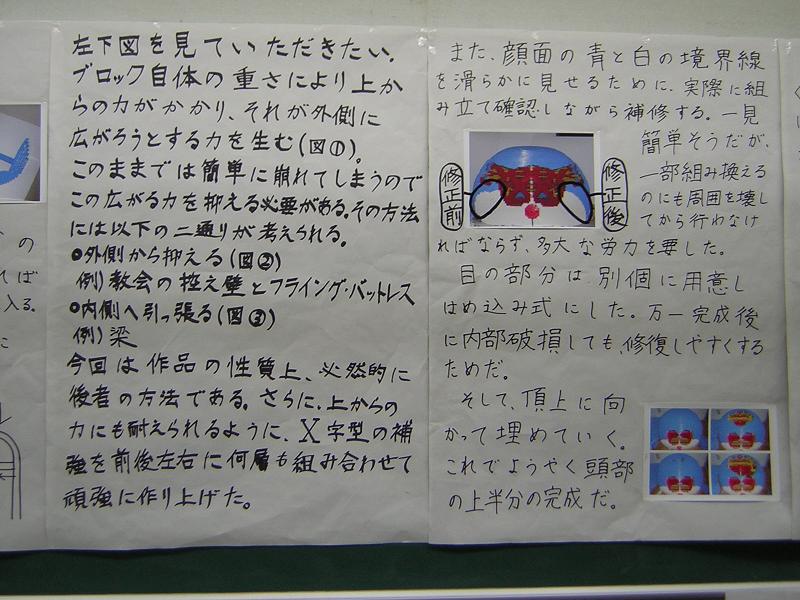 左下図を見ていただきたい。
ブロック自体の重さにより上か
らの力がかかり、それが外側に
広がろうとする力を生む(図①)。
このままでは簡単に崩れてしまうので
この広がる力を抑える必要がある。その方法
には以下の二通りが考えられる。
●外側から抑える(図②)
例)教会の控え壁とフライング・バットレス
●内側へ引っ張る(図③)
例)梁
今回は作品の性質上、必然的に
後者の方法である。さらに、上からの
力にも耐えられるように、X字型の補
強を前後左右に何層も組み合わせて
頑強に作り上げた。
また、顔面の青と白の境界線
を滑らかに見せるために、実際に組
み立て確認しながら補修する。一見
簡単そうだが、
一部組み換える
のにも周囲を壊し
てから行わなけ
ればならず、多大な労力を要した。
修正前
修正後
目の部分は、別個に用意し
はめ込み式にした。万一完成後
に内部破損しても、修復しやすくする
ためだ。
そして、頂上に向
かって埋めていく。
これでようやく頭部
の上半分の完成だ。
の
れば
入る。
に